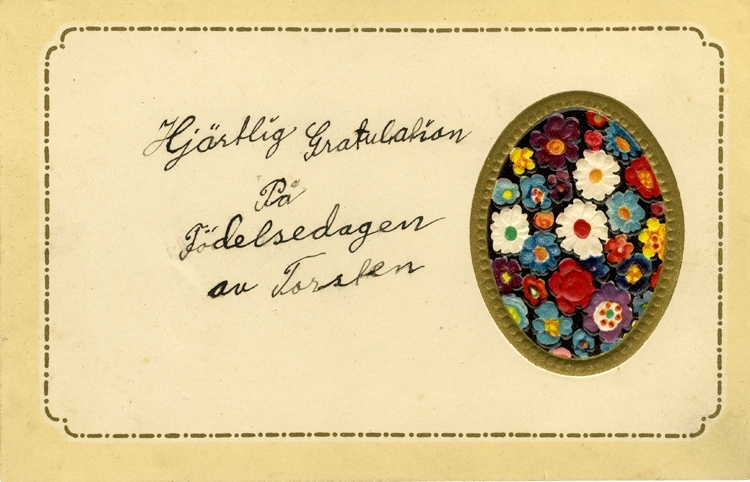 Hjärtlig Gratulation
På
Födelsedagen
av Torsten